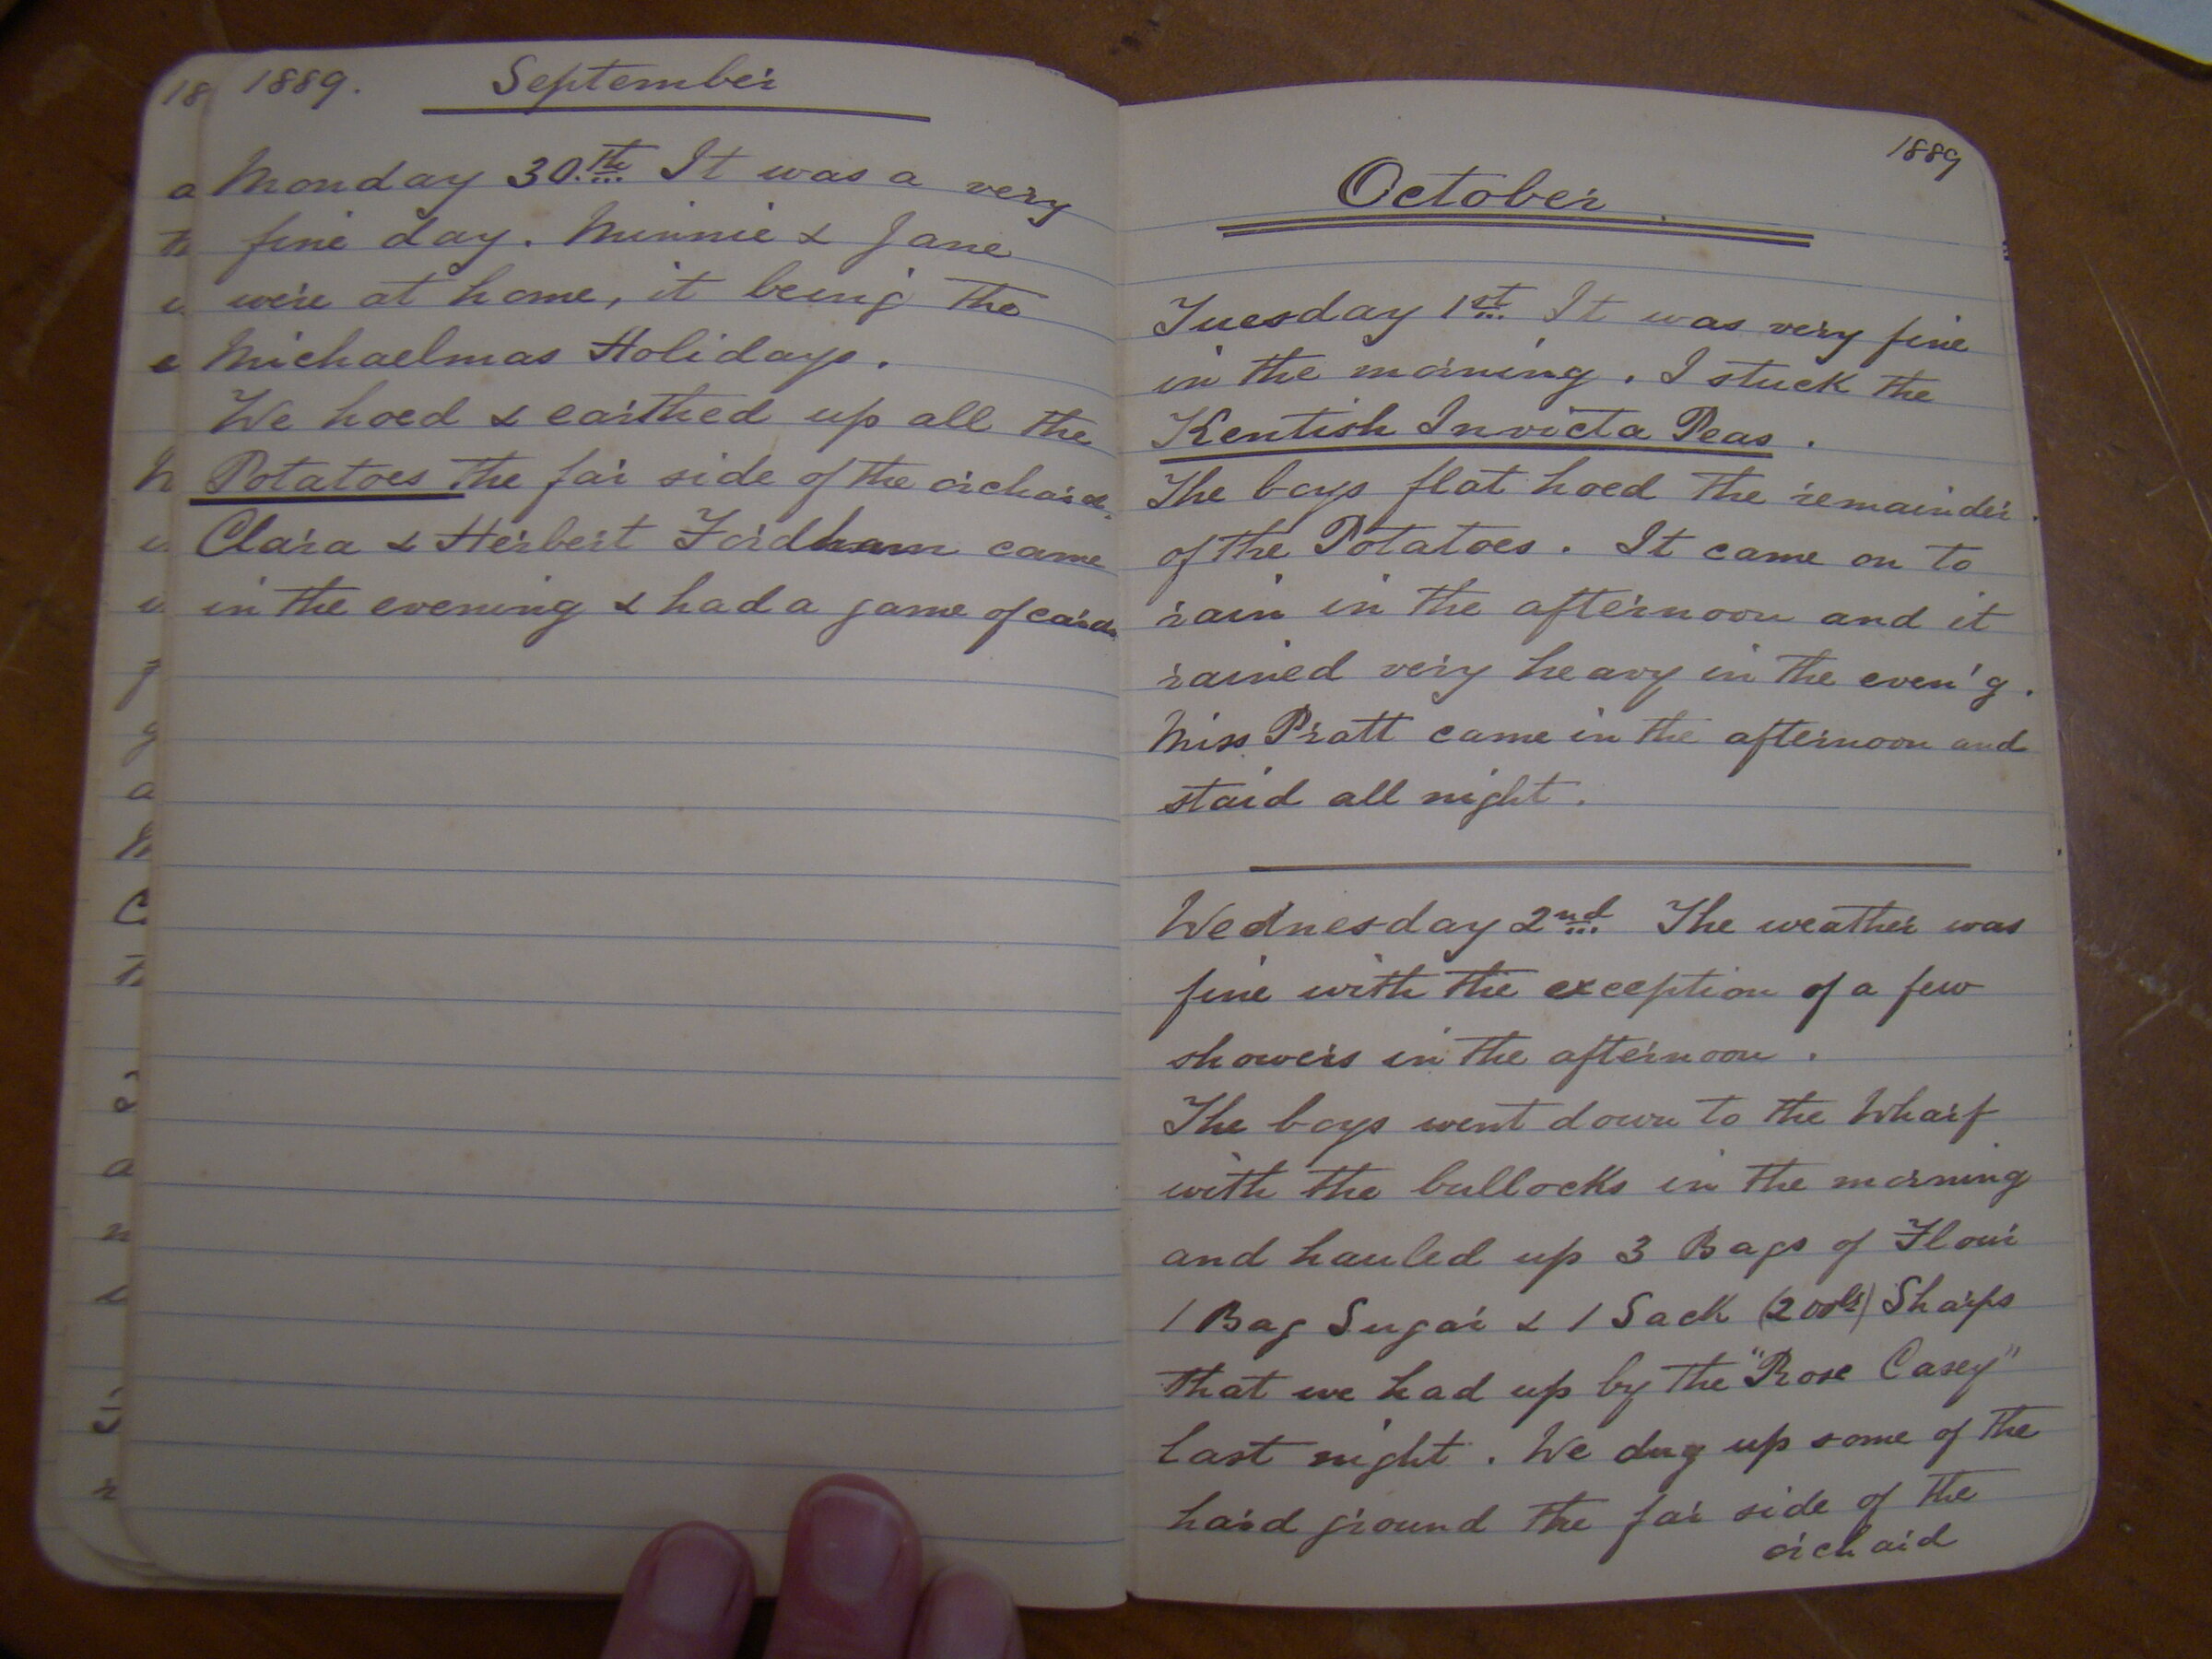 1889. September
Monday 30.th It was a very
fine day. Minnie & Jane
were at home, it being the
Michaelmas Holidays.
We hoed & earthed up all the
Potatoes the far side of the orchard.
Clara & Herbert Fordham came
in the evening & had a game of cards
1889
October
Tuesday 1st It was very fine
in the morning. I stuck the
Kentish Invicta Peas.
The boys flat hoed the remainder
of the Potatoes. It came on to
rain in the afternoon and it
rained very heavy in the even'g.
Miss Pratt came in the afternoon and
staid all night.
Wednesday 2nd The weather was
fine with the exception of a few
showers in the afternoon.
The boys went down to the Wharf
with the bullocks in the morning
and hauled up 3 Bags of Flour
1 Bag Sugar & 1 Sack (200lb) Sharps
that we had up by the "Rose Casey"
last night. We dug up some of the
hard ground the far side of the
orchard